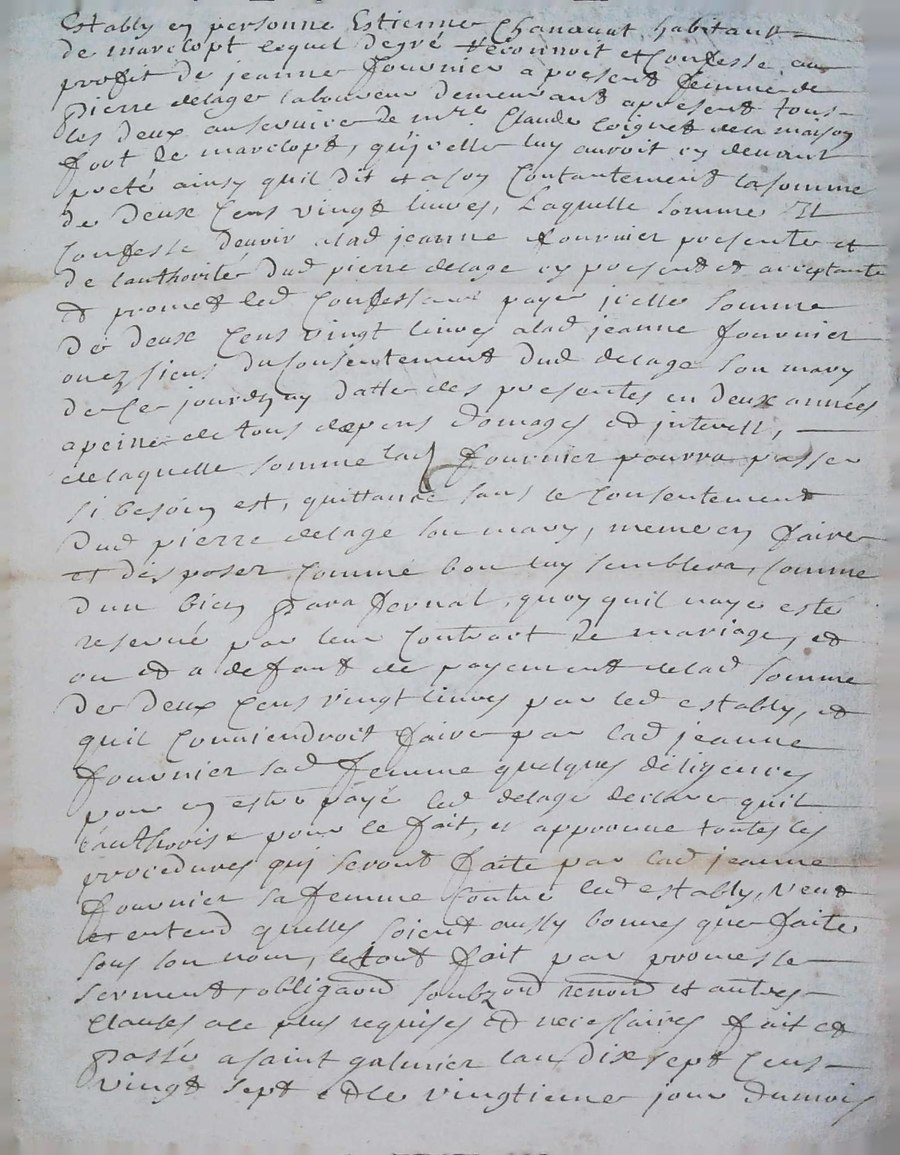 Estably en personne Estienne Chanauat habitant
de marclopt lequel degré reconnoit et Confesse au
profit de jeanne fournier a present femme de
pierre delage laboureur demeurant apresent tous
les deux auseruice de mre Claude Coignet dela maison
fort de marclopt, qujcelle luy auroit cy deuant
preté ainsy quil dit et a son Contantement lasomme
de deux Cens vingt liures, Laquelle somme Il
Confesse deuoir alad jeanne fournier presente et
de lauthorité dud pierre delage cy present et acceptante
et promet led Confessant payer jcelle somme
de deux Cens vingt liures alad jeanne fournier
ou ez siens du Consentement dud delage son mary
de Ce jourdhuy datte des presentes en deux années
apeine de tous depens domages et jnterest,
delaquelle somme lad fournier pourra passer
si besoin est, quittance sans le Consentement
dud pierre delage son mary, meme en faire
et disposer Comme bon luy semblera, Comme
dun bien parafernal, quoy quil naye esté
reserué par leur Contract de mariage, et
ou et a defaut de payement delad somme
de deux Cens vingt liures par led estably, et
quil Conuiendroit faire par lad jeanne
fournier sad femme quelques diligences
pour en estre payé led delage declare quil
lauthorise pour le fait, et approuue toutes les
procedures quj seront faite par lad jeanne
fournier sa femme Contre led estably, Veut
et entend quelles soient aussy bonnes que faite
sous son nom, le tout fait par promesse
serment, obligaon soubzon renon et autres
Clauses a ce plus requises et necessaires fait et
passé a saint galmier lan dix sept Cens
vingt sept et le vingtieme jour du mois